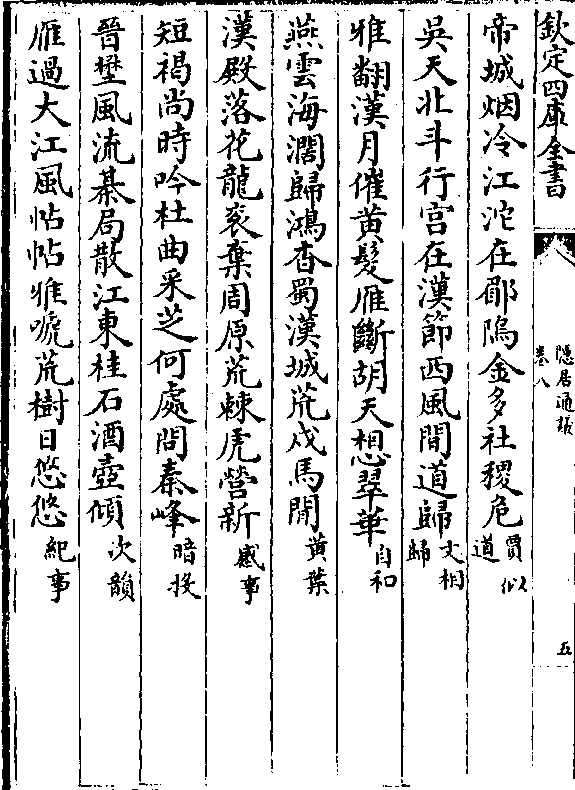 欽定四庫全書
隱居通議
卷八
五
帝城烟冷江沱在郿隖金多社稷危賈似道
吳天北斗行宮在漢節西風間道歸文相歸
雅翻漢月催黃髮雁斷胡天想翠華自和
燕雲海濶歸鴻杳蜀漢城荒戍馬閒黃葉
漢殿落花龍衮棄周原荒棘虎營新感事
短褐尚時吟杜曲采芝何處問秦峰暗投
晉壄風流棊局散江東桂石酒壺傾次韻
雁過大江風帖帖雅嗁荒樹日悠悠紀事